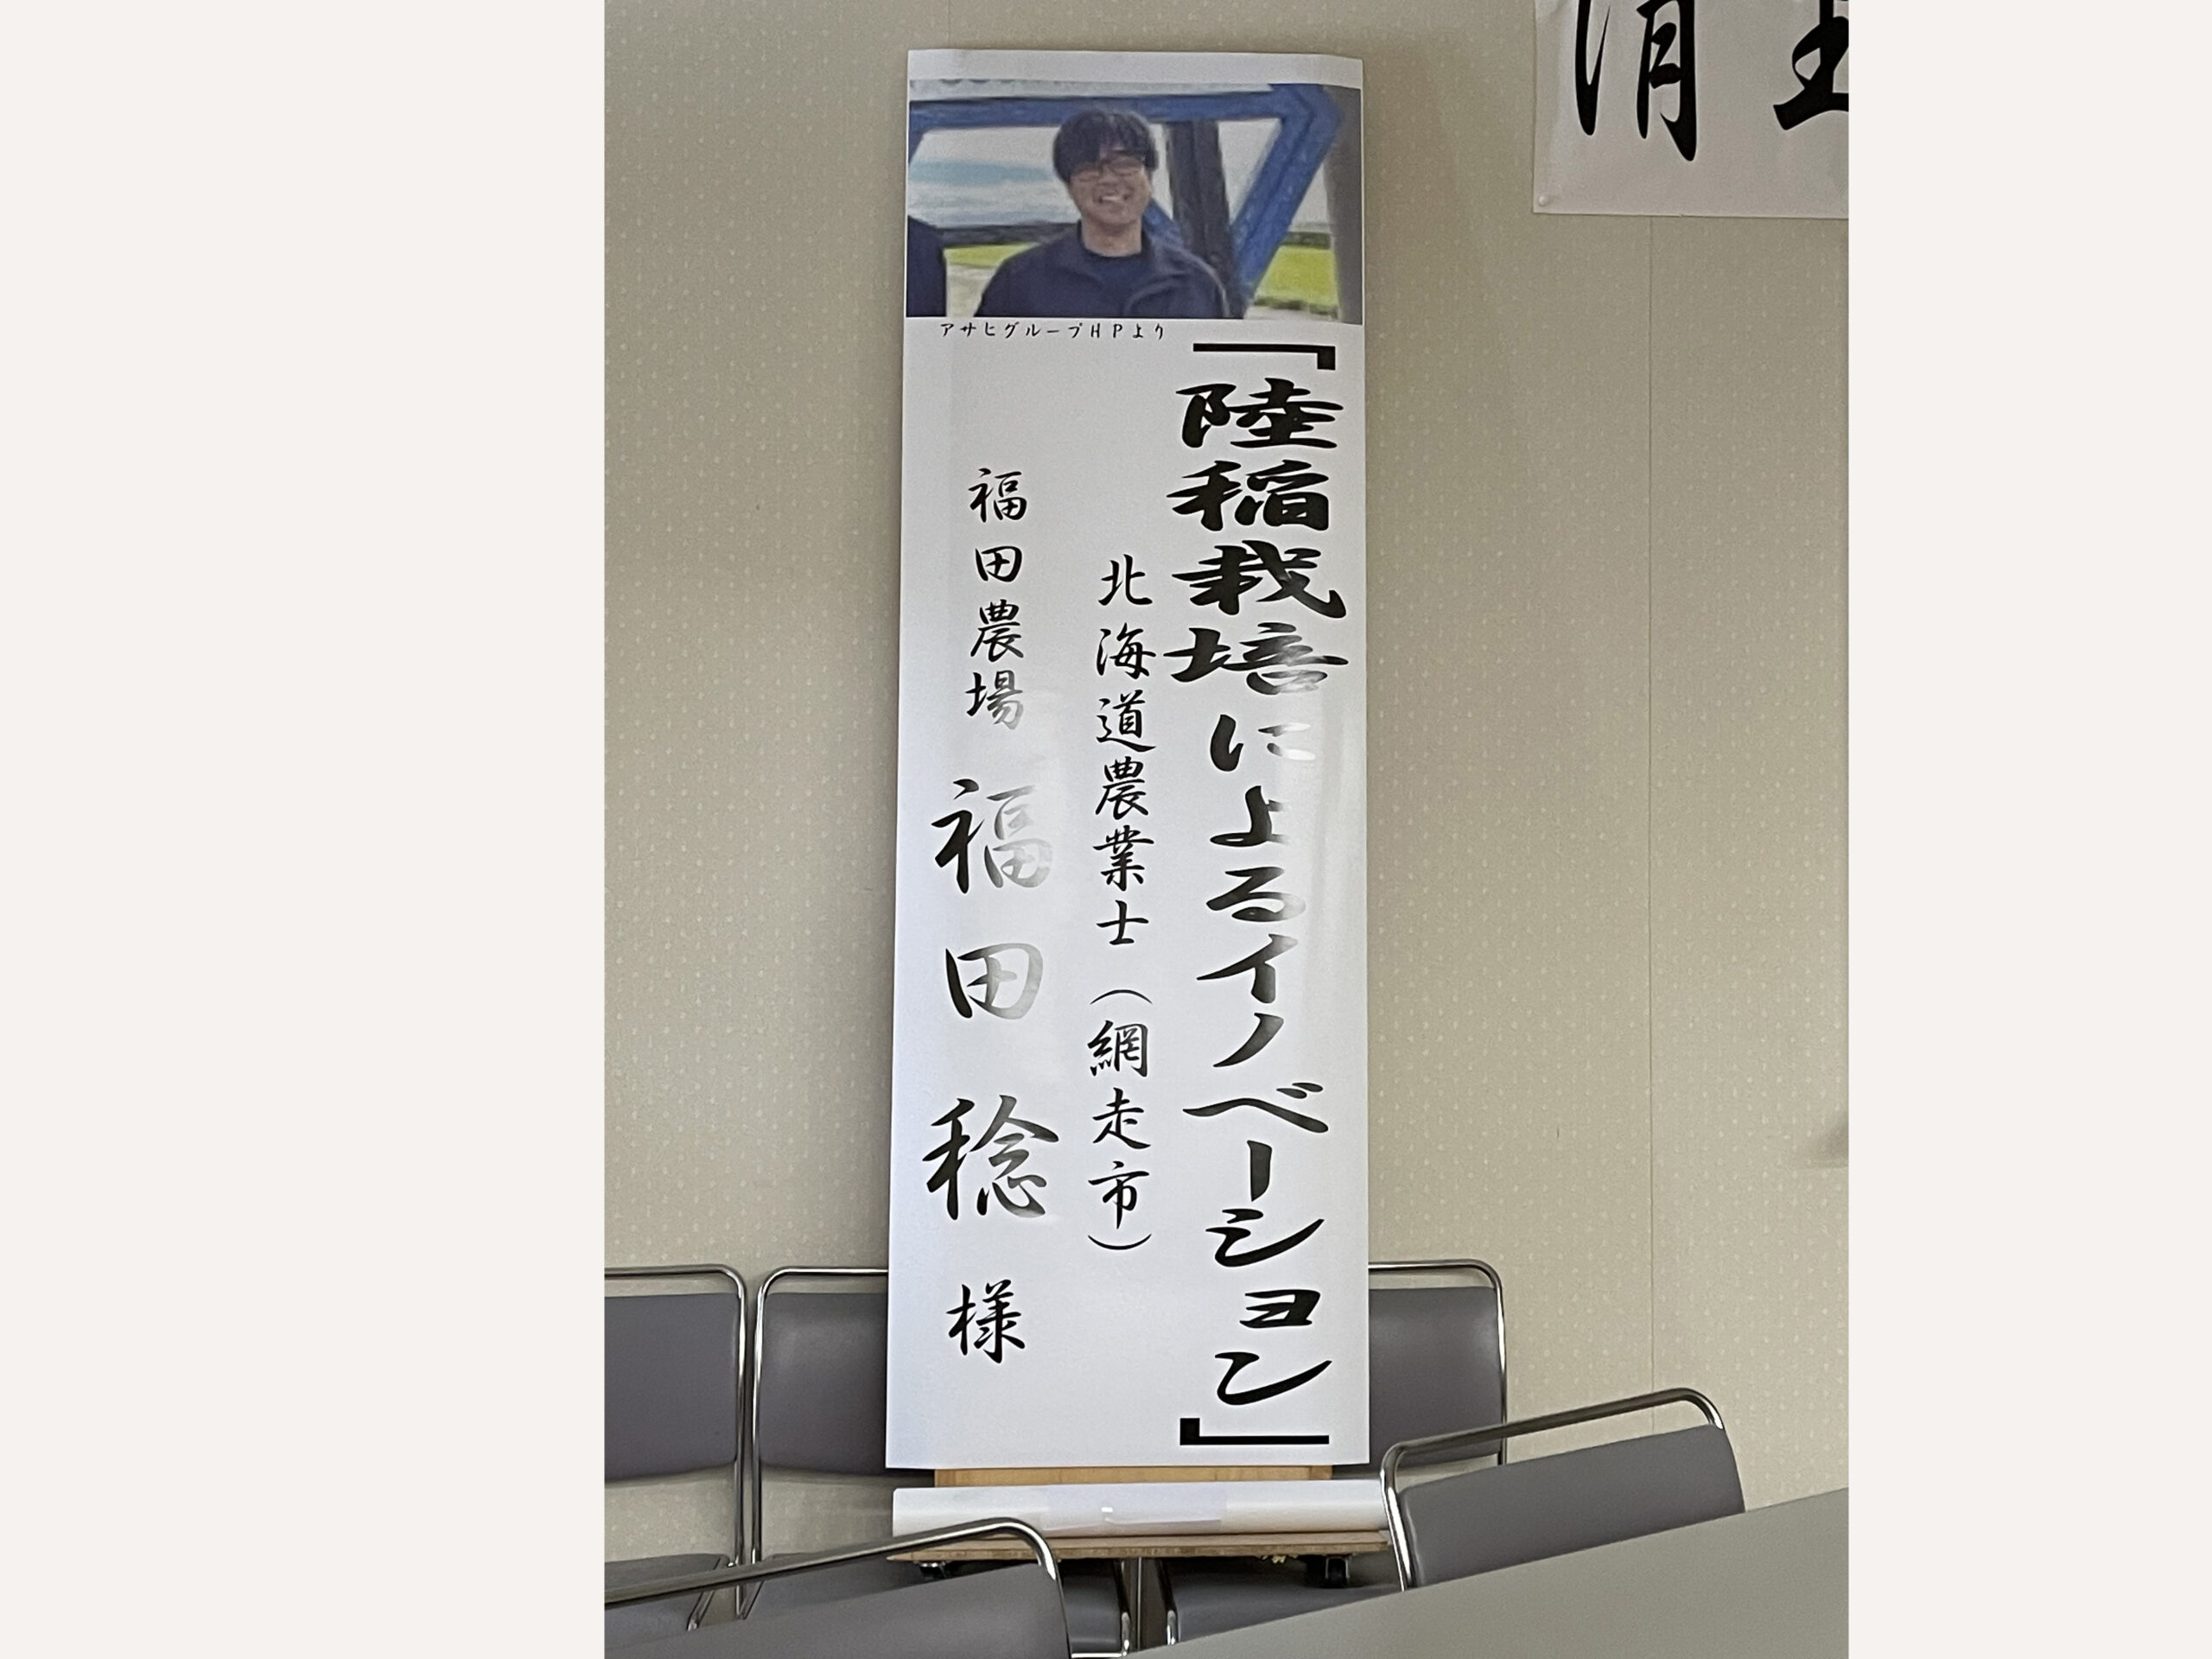 アサヒグループHPより
「陸稲栽培によるイノベーション」
北海道農業士（網走市）
福田農場 福田稔様